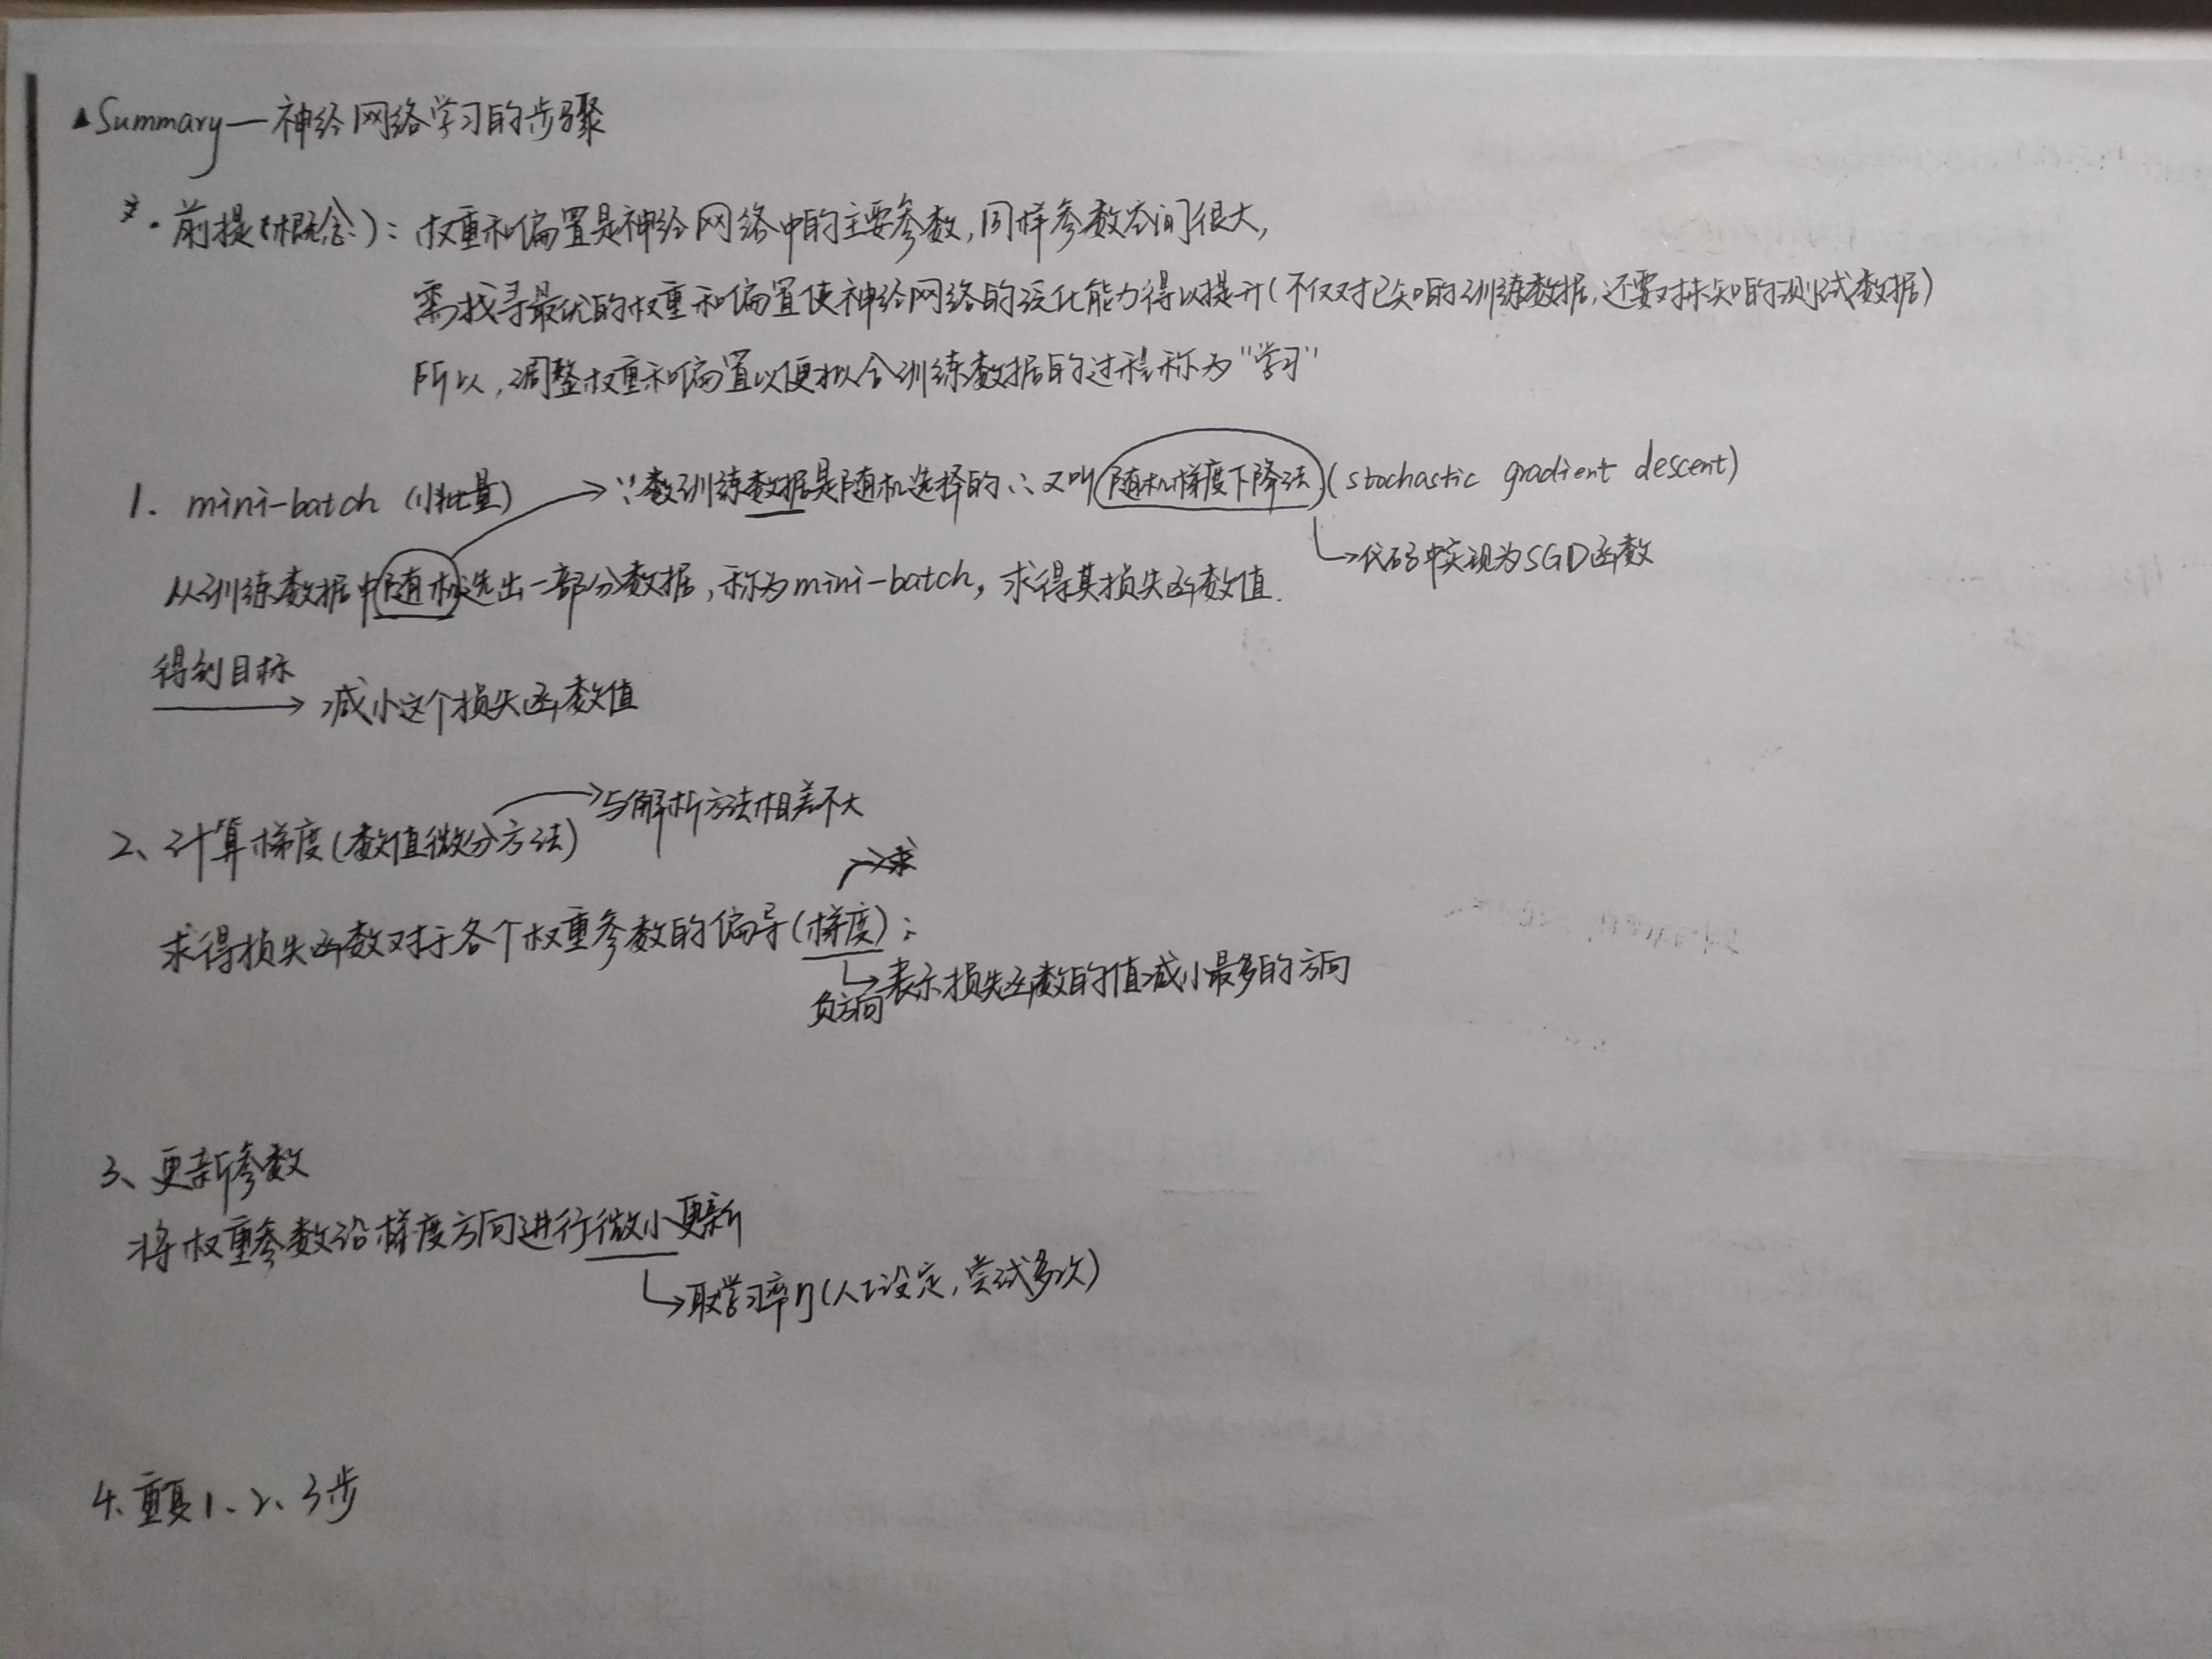 ▲Summary—神经网络学习的步骤
*.前提(概念):权重和偏置是神经网络中的主要参数,同样参数空间很大,
需找寻最优的权重和偏置使神经网络的泛化能力得以提升(不仅对已知的训练数据,还要对未知的测试数据)
所以,调整权重和偏置以便拟合训练数据的过程称为"学习"
1. mini-batch (小批量) → ∵数训练数据是随机选择的 ∴又叫(随机梯度下降法)(stochastic gradient descent)
↳代码中实现为SGD函数
从训练数据中随机选出一部分数据,称为mini-batch,求得其损失函数值.
得到目标 → 减小这个损失函数值
2、计算梯度(数值微分方法) → 与解析方法相差不大
求得损失函数对于各个权重参数的偏导(梯度);
↳表示损失函数的值减小最多的方向
负方向
3、更新参数
将权重参数沿梯度方向进行微小更新
↳取学习率η(人工设定,尝试多次)
4、重复1、2、3步